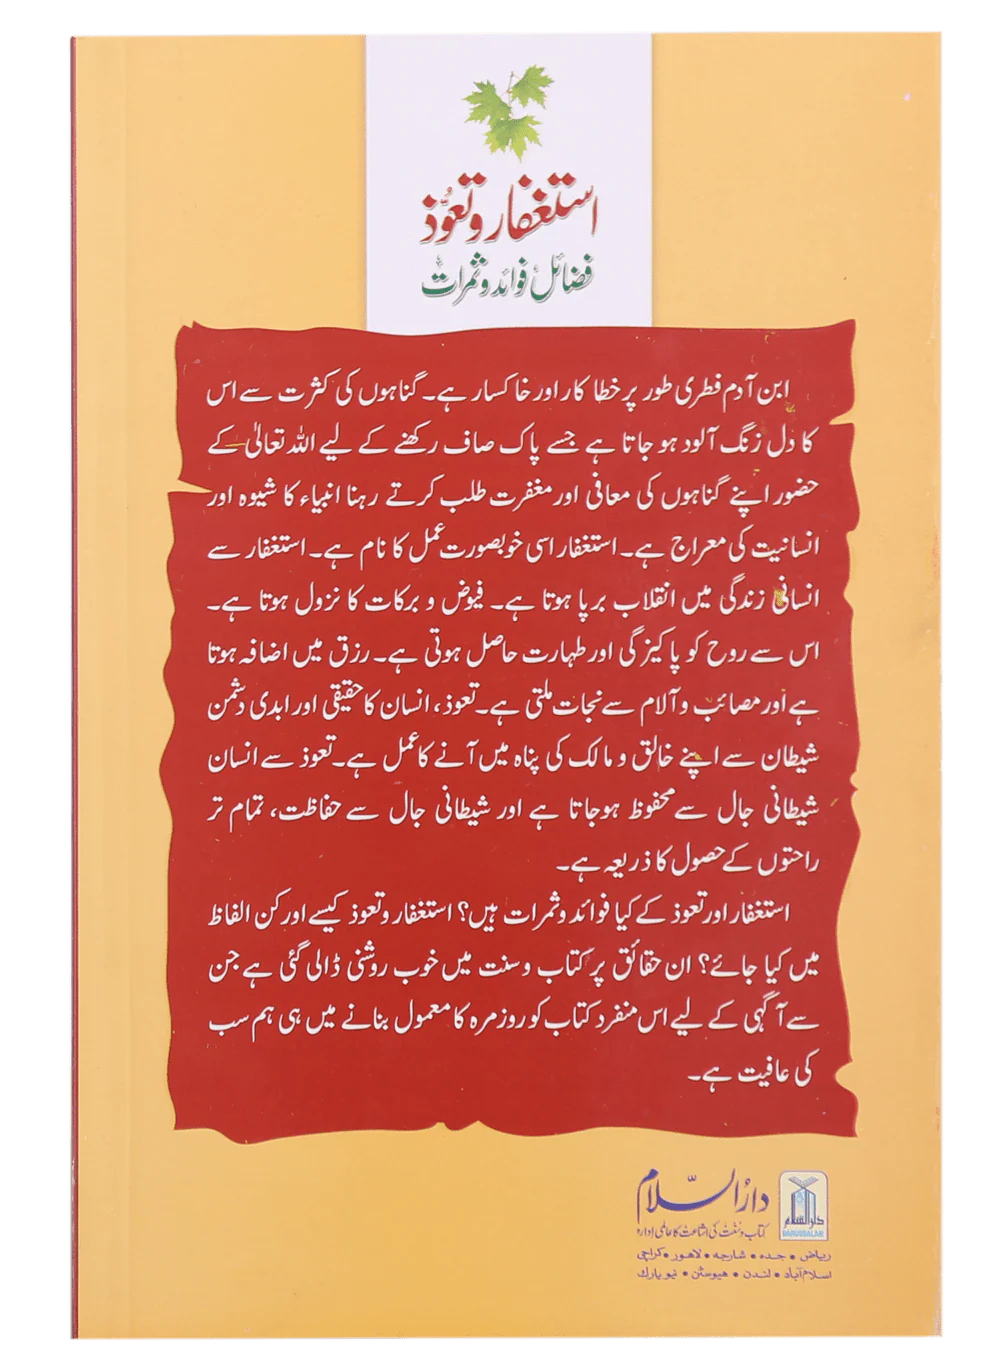 استغفار و تعوّذ
فضائل، فوائد و ثمرات
ابن آدم فطری طور پر خطا کار اور خاکسار ہے۔ گناہوں کی کثرت سے اس
کا دل زنگ آلود ہو جاتا ہے جسے پاک صاف رکھنے کے لیے اللہ تعالیٰ کے
حضور اپنے گناہوں کی معافی اور مغفرت طلب کرتے رہنا انبیاء کا شیوہ اور
انسانیت کی معراج ہے۔ استغفار اسی خوبصورت عمل کا نام ہے۔ استغفار سے
انسانی زندگی میں انقلاب برپا ہوتا ہے۔ فیوض و برکات کا نزول ہوتا ہے۔
اس سے روح کو پاکیزگی اور طہارت حاصل ہوتی ہے۔ رزق میں اضافہ ہوتا
ہے اور مصائب و آلام سے نجات ملتی ہے۔ تعوذ، انسان کا حقیقی اور ابدی دشمن
شیطان سے اپنے خالق و مالک کی پناہ میں آنے کا عمل ہے۔ تعوذ سے انسان
شیطانی جال سے محفوظ ہوجاتا ہے اور شیطانی جال سے حفاظت، تمام تر
راحتوں کے حصول کا ذریعہ ہے۔
استغفار اور تعوذ کے کیا فوائد و ثمرات ہیں؟ استغفار و تعوذ کیسے اور کن الفاظ
میں کیا جائے؟ ان حقائق پر کتاب و سنت میں خوب روشنی ڈالی گئی ہے جن
سے آگہی کے لیے اس منفرد کتاب کو روزمرہ کا معمول بنانے میں ہی ہم سب
کی عافیت ہے۔
دارُالسّلام
دارالسلام
DARUSSALAM
کتاب و سنت کی اشاعت کا عالمی ادارہ
ریاض • جدہ • شارجہ • لاہور • کراچی
اسلام آباد • لندن • ہیوسٹن • نیو یارک